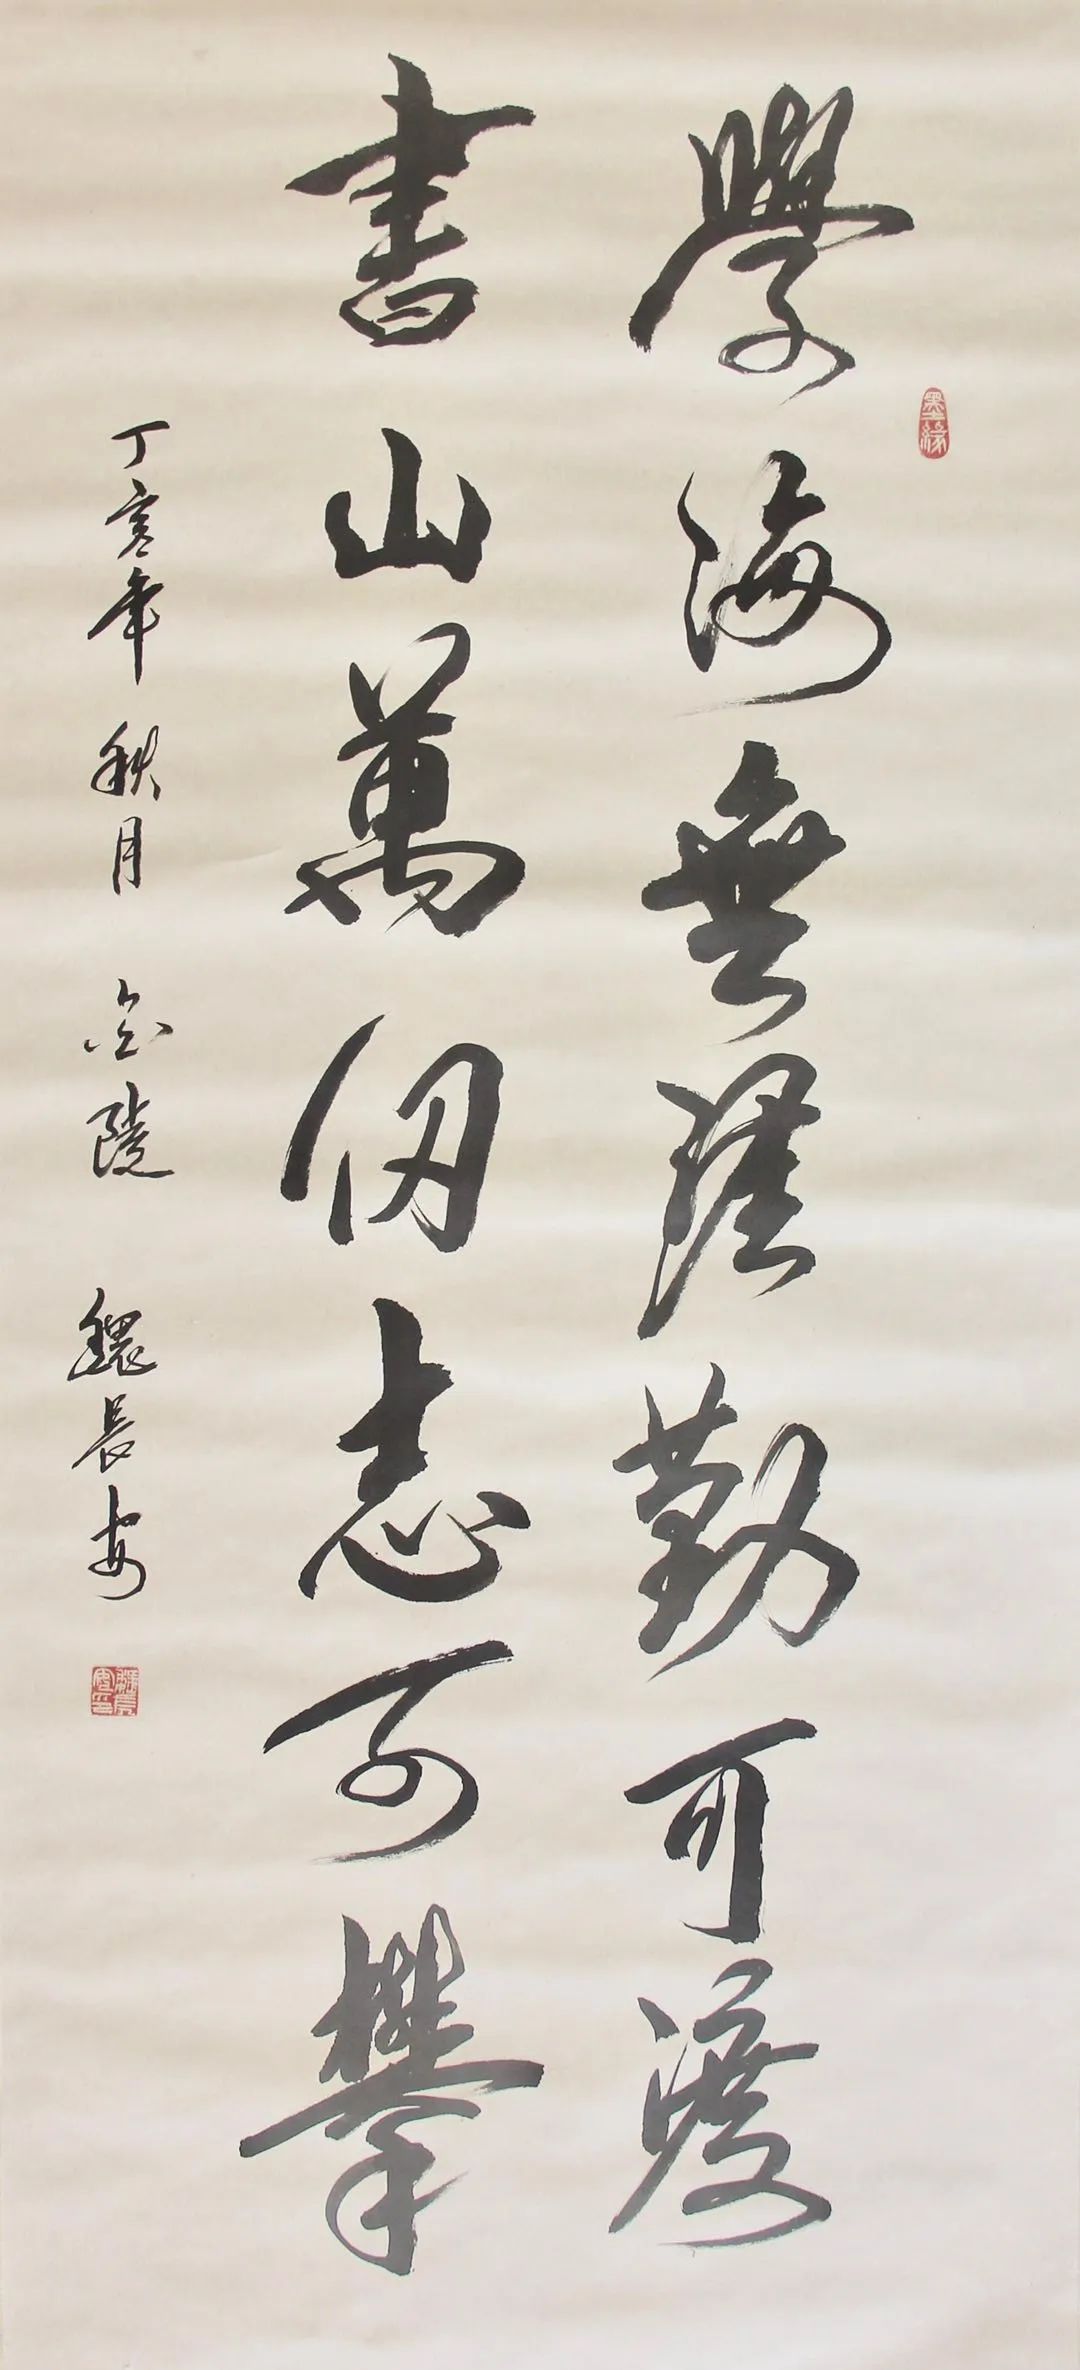 學海無涯勤可渡
書山萬仞志可攀
丁亥年秋月金陵魏長安
墨緣
魏長安印